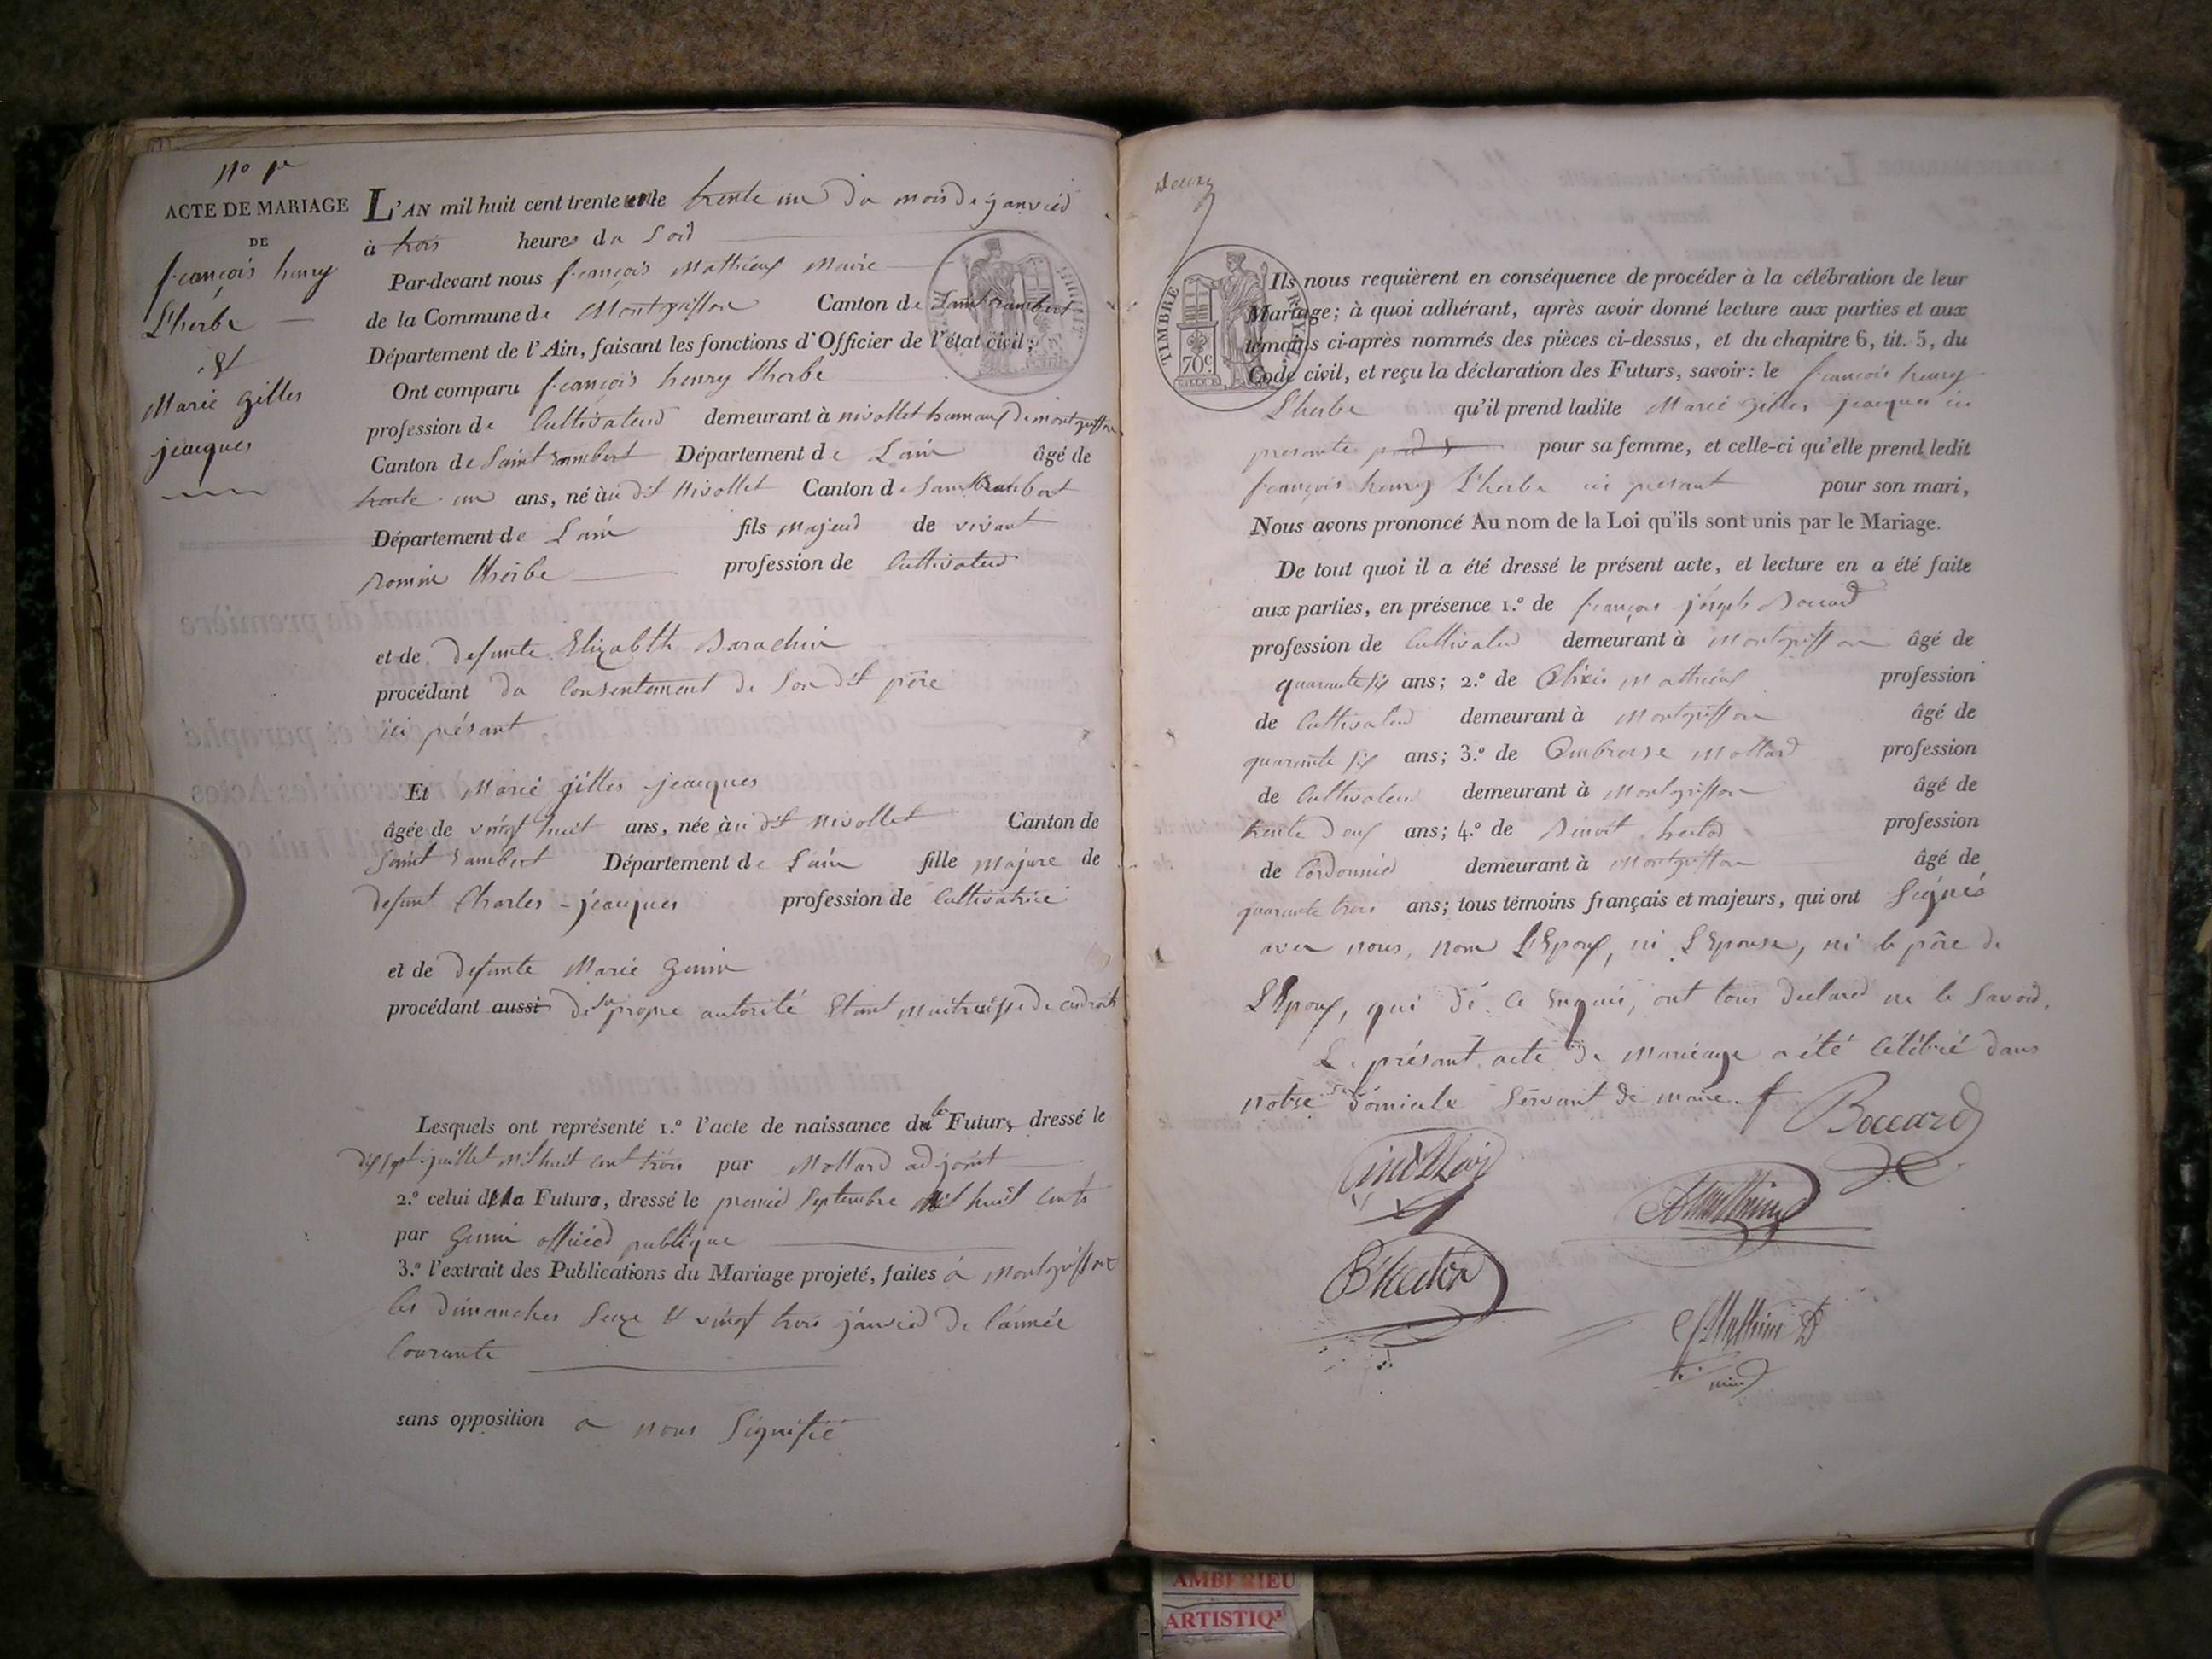 N° 1er
ACTE DE MARIAGE
DE
françois henry
L'herbe
&
Marie gilles
jeacques
L'AN mil huit cent trente un le trente un du mois de janvier
à trois heures du Soir
Par-devant nous françois Mathieux Maire
de la Commune de Montgriffon Canton de Saint rambert
Département de l'Ain, faisant les fonctions d'Officier de l'état civil;
Ont comparu françois henry lherbe
profession de Cultivateur demeurant à nivollet hamaux de montgriffon
Canton de Saint rambert Département de L'ain âgé de
trente un ans, né au dit Nivollet Canton de Saint Rambert
Département de L'ain fils majeur de vivant
Romin lherbe profession de Cultivateur
et de defunte Elizabeth Barachin
procédant du Consentement de Son dit père
ici présant
Et Marie gilles jeacques
âgée de vingt huit ans, née au dit Nivollet Canton de
Saint rambert Département de L'ain fille majure de
defunt Charles jeacques profession de Cultivatrice
et de defunte Marie Genin
procédant aussi de sa propre autorité Etant maitraisse de ces droits
Lesquels ont représenté 1.° l'acte de naissance du Futur, dressé le
dix sept juillet mil huit cent trois par Mollard adjoint
2.° celui de la Future, dressé le premier Septembre mil huit cents
par Genin officier publique
3.° l'extrait des Publications du Mariage projeté, faites à Montgriffon
les dimanches Seize & vingt trois janvier de l'année
Courante
sans opposition a nous Signifié
deux
TIMBRE ROYAL
70 c
Ils nous requièrent en conséquence de procéder à la célébration de leur
Mariage; à quoi adhérant, après avoir donné lecture aux parties et aux
témoins ci-après nommés des pièces ci-dessus, et du chapitre 6, tit. 5, du
Code civil, et reçu la déclaration des Futurs, savoir: le françois henry
L'herbe qu'il prend ladite Marie gilles jeacques ici
presante pour sa femme, et celle-ci qu'elle prend ledit
françois henry L'herbe ici présant pour son mari,
Nous avons prononcé Au nom de la Loi qu'ils sont unis par le Mariage.
De tout quoi il a été dressé le présent acte, et lecture en a été faite
aux parties, en présence 1.° de françois joseph Boccard
profession de Cultivateur demeurant à Montgriffon âgé de
quarante six ans; 2.° de Alixis Mathieux profession
de Cultivateur demeurant à Montgriffon âgé de
quarante six ans; 3.° de Ambroise Mollard profession
de Cultivateur demeurant à Montgriffon âgé de
trente deux ans; 4.° de Benoit hector profession
de Cordonnier demeurant à Montgriffon âgé de
quarante trois ans; tous témoins français et majeurs, qui ont Signés
avec nous, nom L'Epoux, ni L'Epouse, ni le père de
L'Epoux, qui de ce enquis, ont tous declarer ne le Savoir,
Le présant acte de mariage a été Célébré dans
notre domicile Servant de mairie f Boccard
B hector